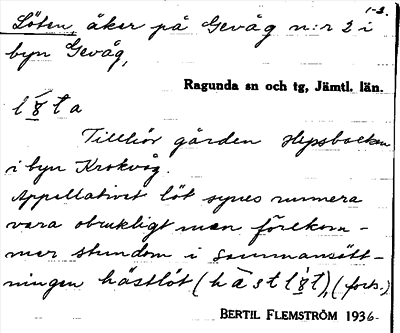 1-2.
Löten, åker på Gevåg n:r 2 i
byn Gevåg,
Ragunda sn och tg, Jämtl. län.
Tillhör gården
i byn Krokvåg.
Appellativet löt synes numera
vara obrukligt men förekom-
mer stundom i sammansätt-
ningen hästlöt (forts.)
BERTIL FLEMSTRÖM 1936-